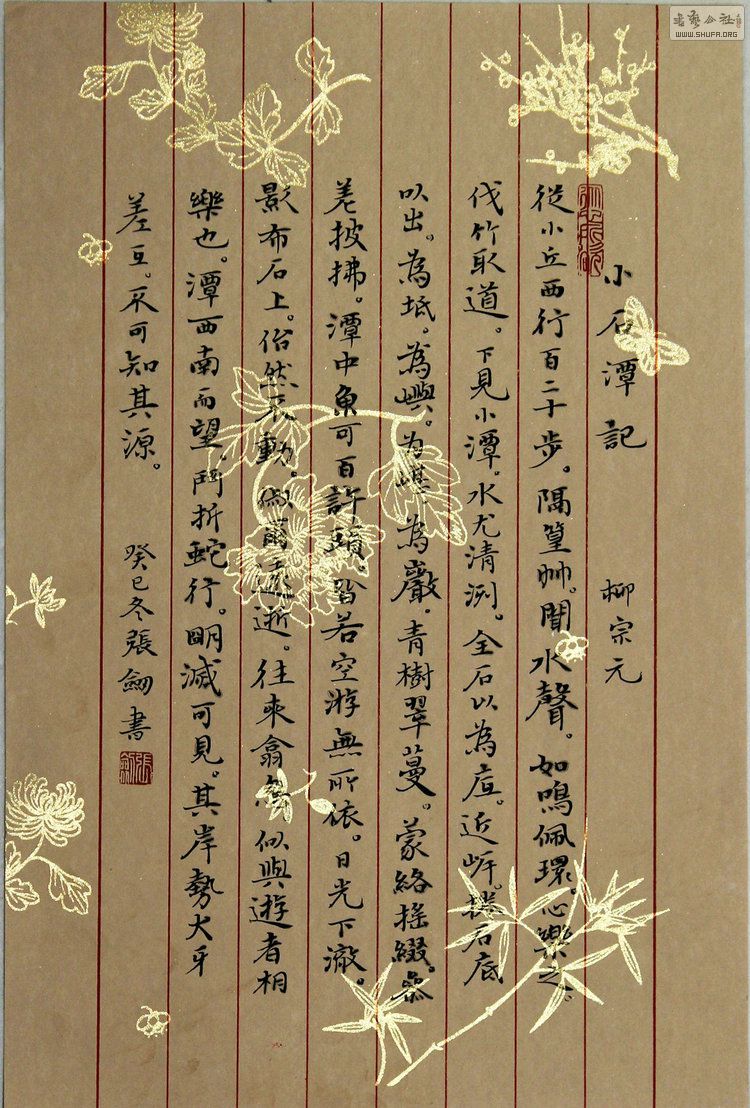 小石潭記 柳宗元
從小丘西行百二十步。隔篁竹。聞水聲。如鳴佩環。心樂之。
伐竹取道。下見小潭。水尤清洌。全石以為底。近岸。卷石底
以出。為坻。為嶼。為嵁。為巖。青樹翠蔓。蒙絡搖綴。參
差披拂。潭中魚可百許頭。皆若空游無所依。日光下澈。
影布石上。佁然不動。俶爾遠逝。往來翕忽。似與遊者相
樂也。潭西南而望。鬥折蛇行。明滅可見。其岸勢犬牙
差互。不可知其源。
癸巳冬張劍書
書藝公社
WWW.SHUFA.ORG